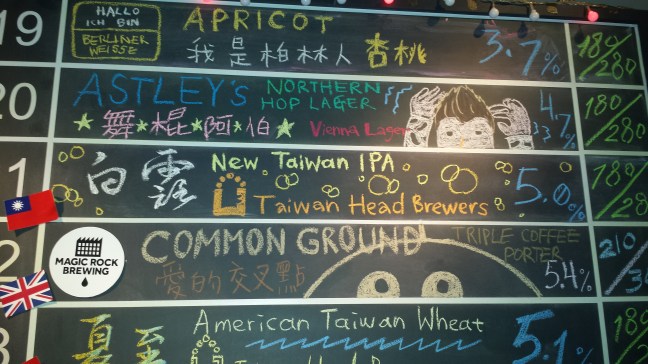 19
HALLO
ICH BIN
BERLINER
WEISSE
APRICOT
我是柏林人 杏桃
3.7%
180/280
20
ASTLEY'S NORTHERN
HOP LAGER
舞棍阿伯 Vienna Lager
4.7%
180/280
1
白露
New Taiwan IPA
Taiwan Head Brewers
5.0%
180/280
2
MAGIC ROCK
BREWING
COMMON GROUND
TRIPLE COFFEE
PORTER
愛的交叉點
5.4%
210/
3
夏至
American Taiwan Wheat
5.1%
180/